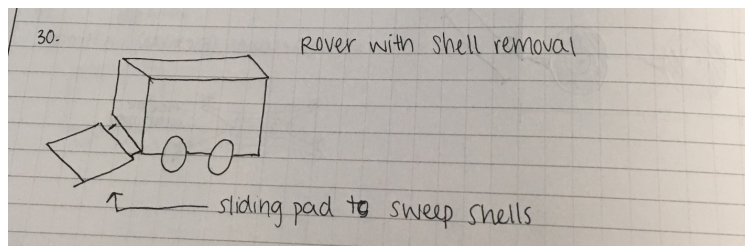 30.
Rover with shell removal
sliding pad to sweep shells